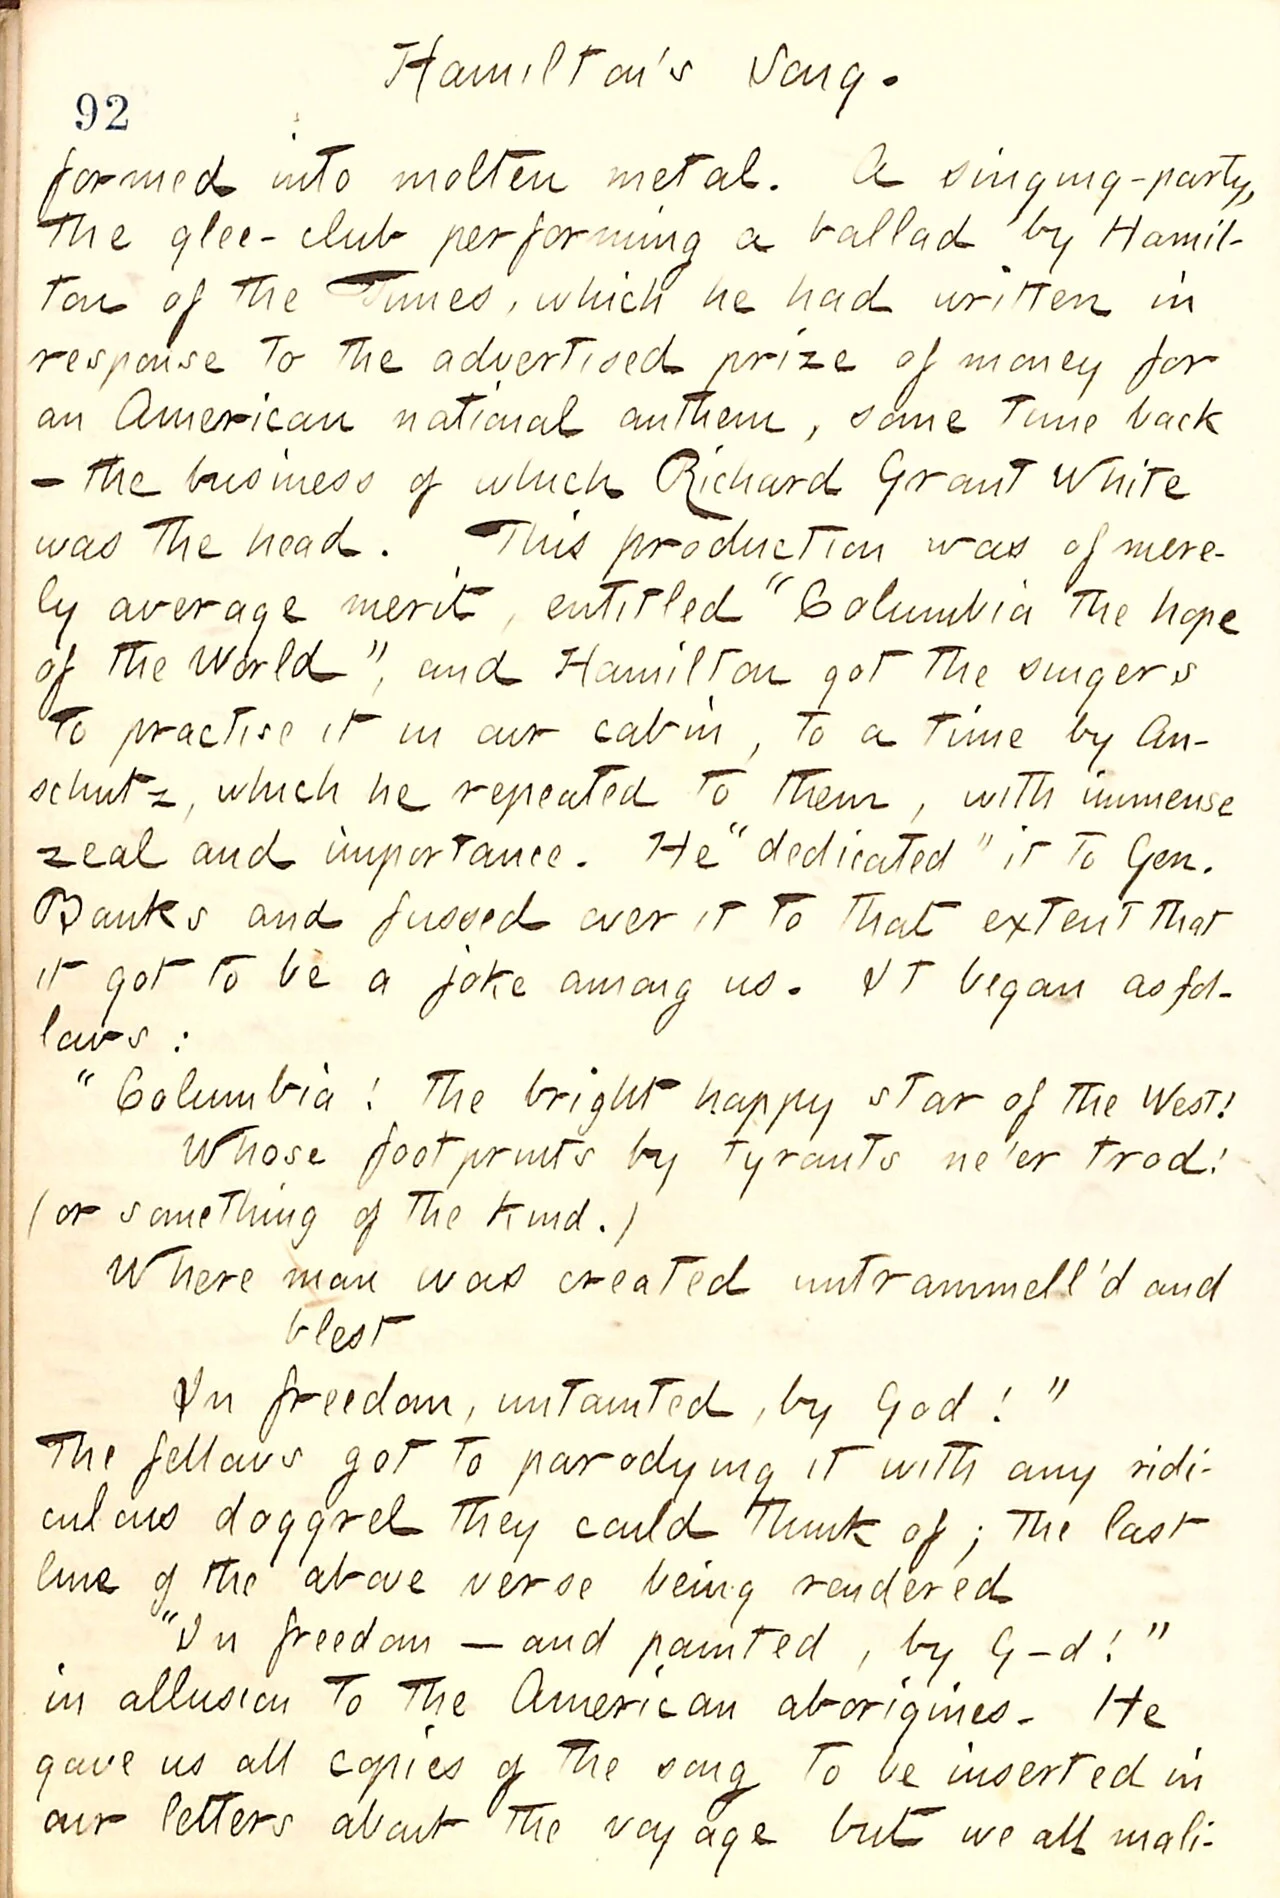 Hamilton's Song.
92
formed into molten metal. A singing-party,
the glee-club performing a ballad by Hamil-
ton of the Times, which he had written in
response to the advertised prize of money for
an American national anthem, some time back
— the business of which Richard Grant White
was the head. This production was of mere-
ly average merit, entitled "Columbia the hope
of the World", and Hamilton got the singers
to practise it in our cabin, to a time by An-
schutz, which he repeated to them, with immense
zeal and importance. He "dedicated" it to Gen.
Banks and fussed over it to that extent that
it got to be a joke among us. It began as fol-
lows:
"Columbia! the bright happy star of the West!
Whose footprints by tyrants ne'er trod!
(or something of the kind.)
Where man was created untrammell'd and
blest
In freedom, untainted, by God!"
The fellows got to parodying it with any ridi-
culous doggrel they could think of; the last
line of the above verse being rendered
"In freedom — and painted, by G-d!"
in allusion to the American aborigines. He
gave us all copies of the song to be inserted in
our letters about the voyage but we all mali-